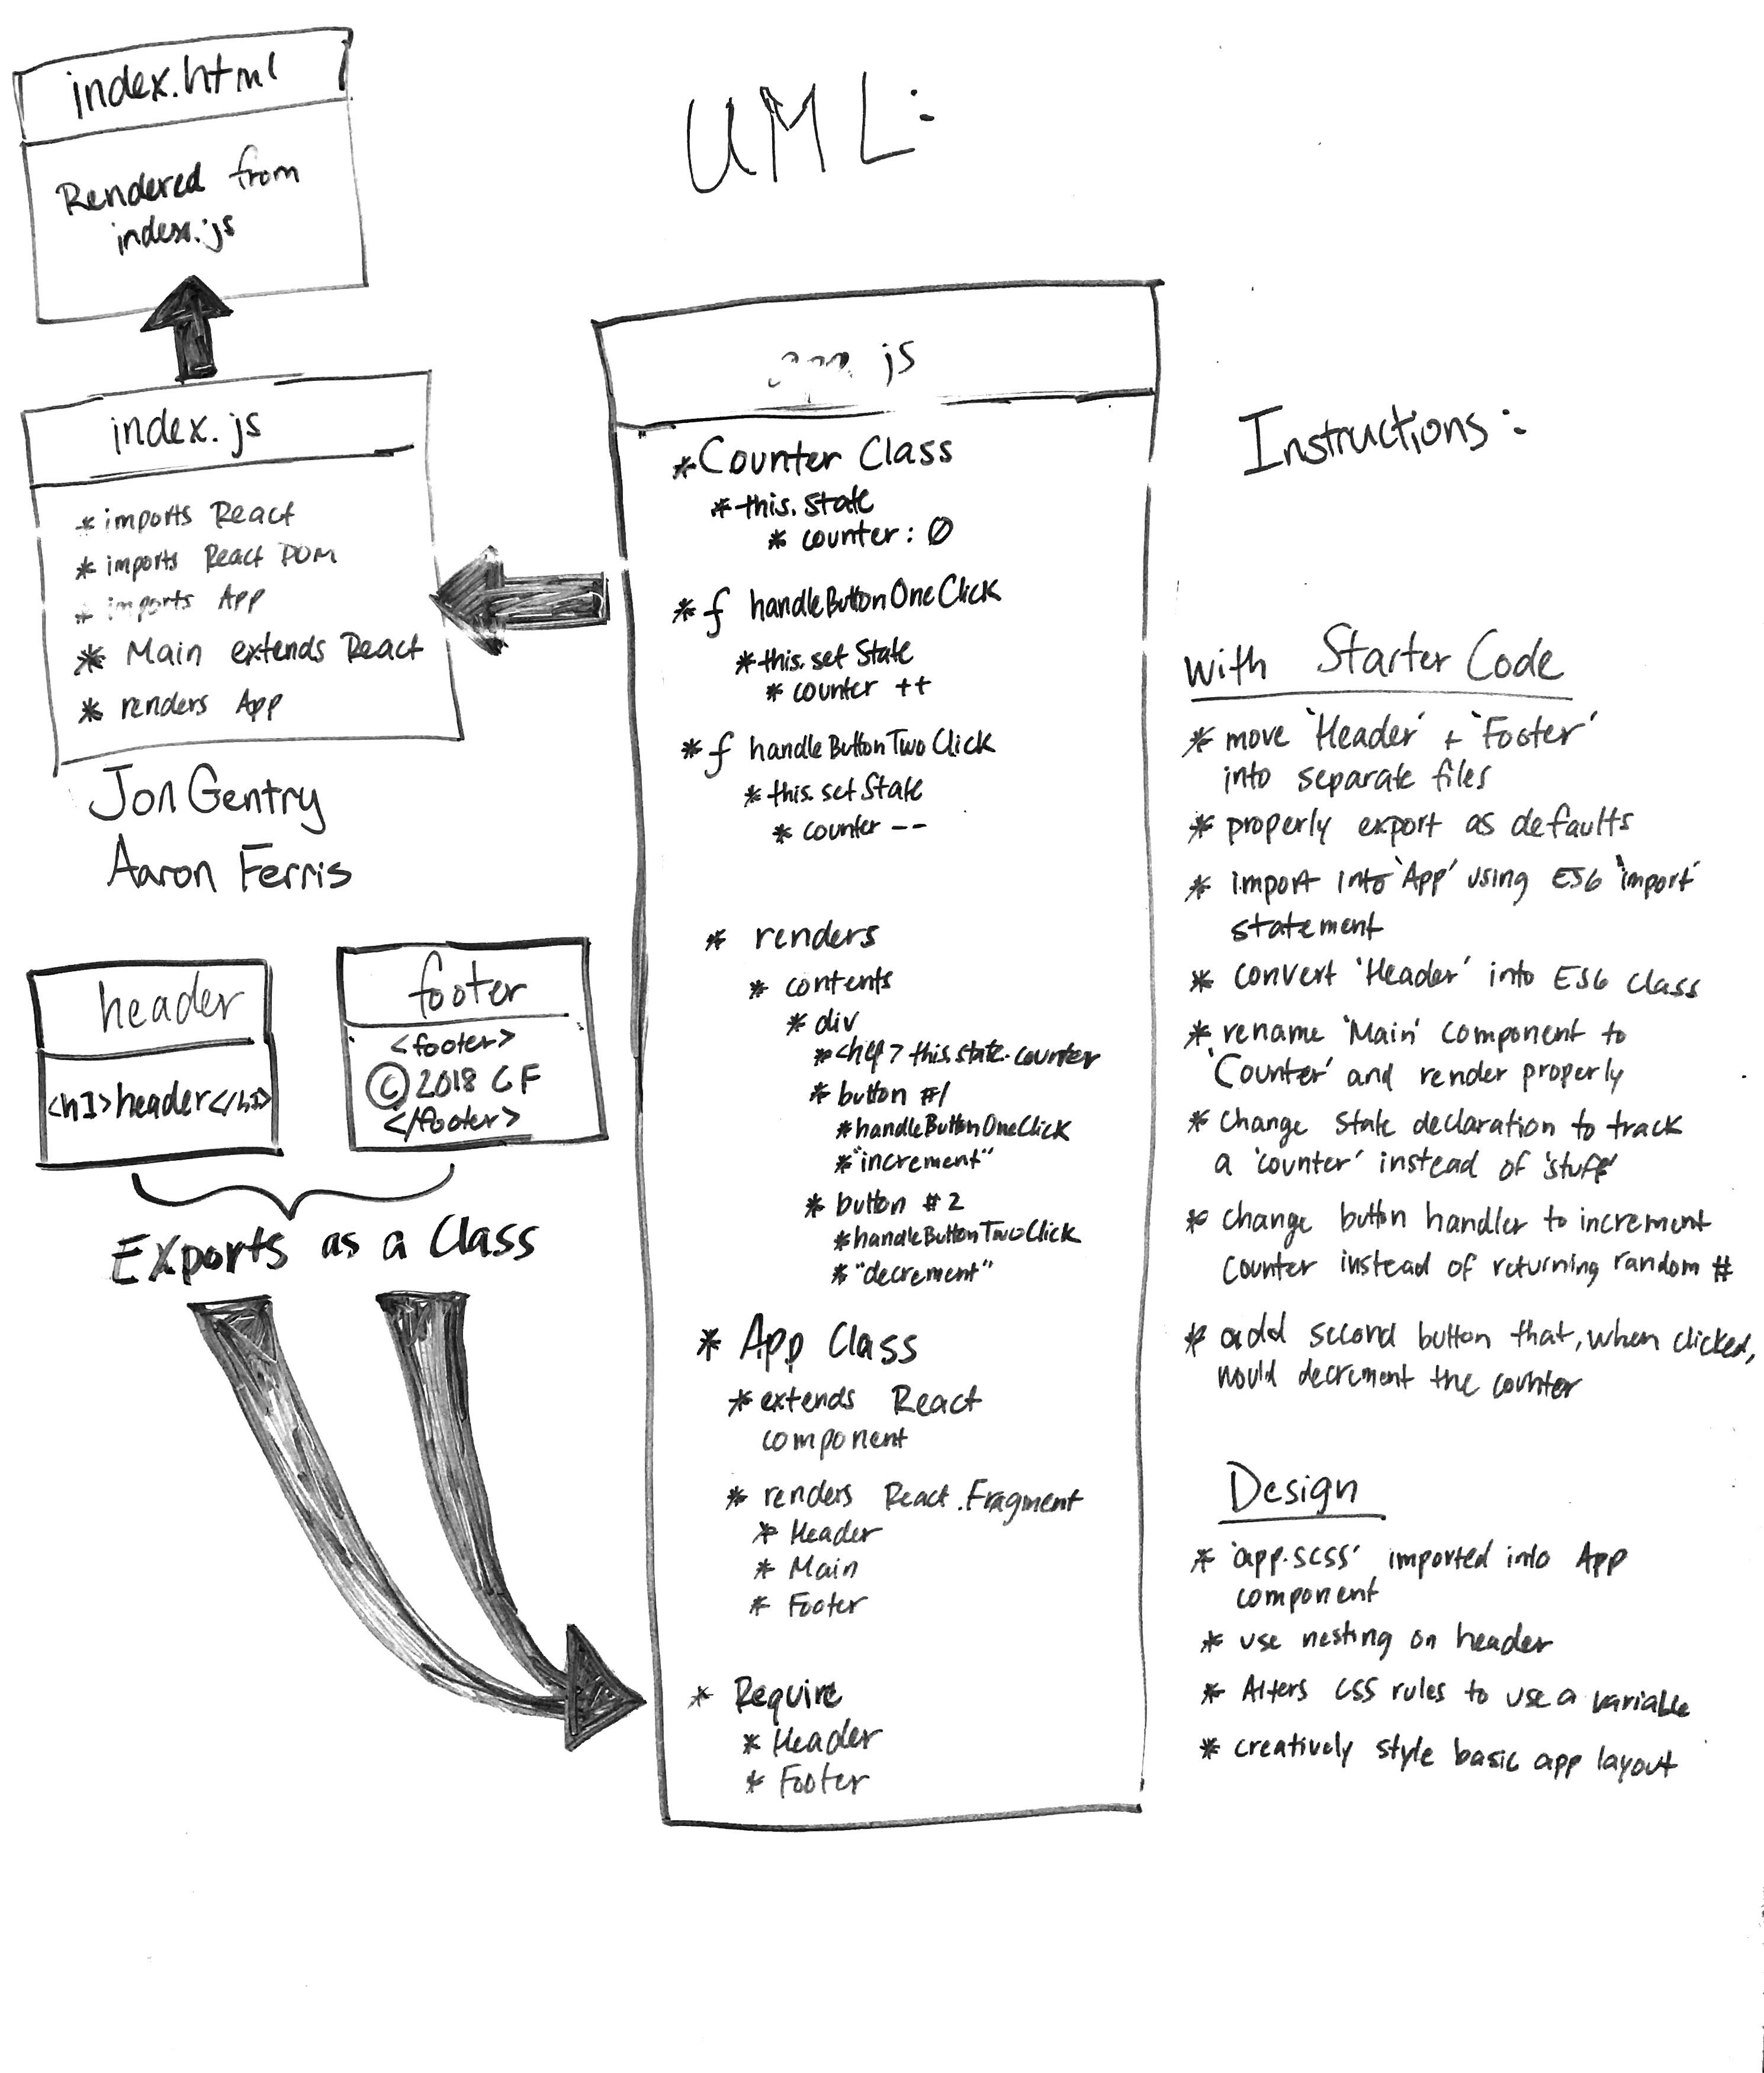 UML:
index.html
Rendered from
index.js
index.js
* imports React
* imports React DOM
* imports App
* Main extends React
* renders App
Jon Gentry
Aaron Ferris
header
<h1>header</h1>
footer
<footer>
© 2018 CF
</footer>
Exports as a Class
js
* Counter Class
* this.state
* counter: 0
* f handleButtonOneClick
* this.setState
* counter ++
* f handleButtonTwoClick
* this.setState
* counter --
* renders
* contents
* div
this.state.counter
* button #1
* handleButtonOneClick
* "increment"
* button #2
* handleButtonTwoClick
* "decrement"
* App Class
* extends React
component
* renders React.Fragment
* Header
* Main
* Footer
* Require
* Header
* Footer
Instructions:
with Starter Code
* move 'Header' + 'Footer'
into separate files
* properly export as defaults
* import into 'App' using ES6 'import'
statement
* convert 'Header' into ES6 class
* rename 'Main' component to
'Counter' and render properly
* Change state declaration to track
a 'counter' instead of 'stuff'
* change button handler to increment
counter instead of returning random #
* add second button that, when clicked,
would decrement the counter
Design
* 'app.scss' imported into App
component
* use nesting on header
* Alters CSS rules to use a variable
* creatively style basic app layout